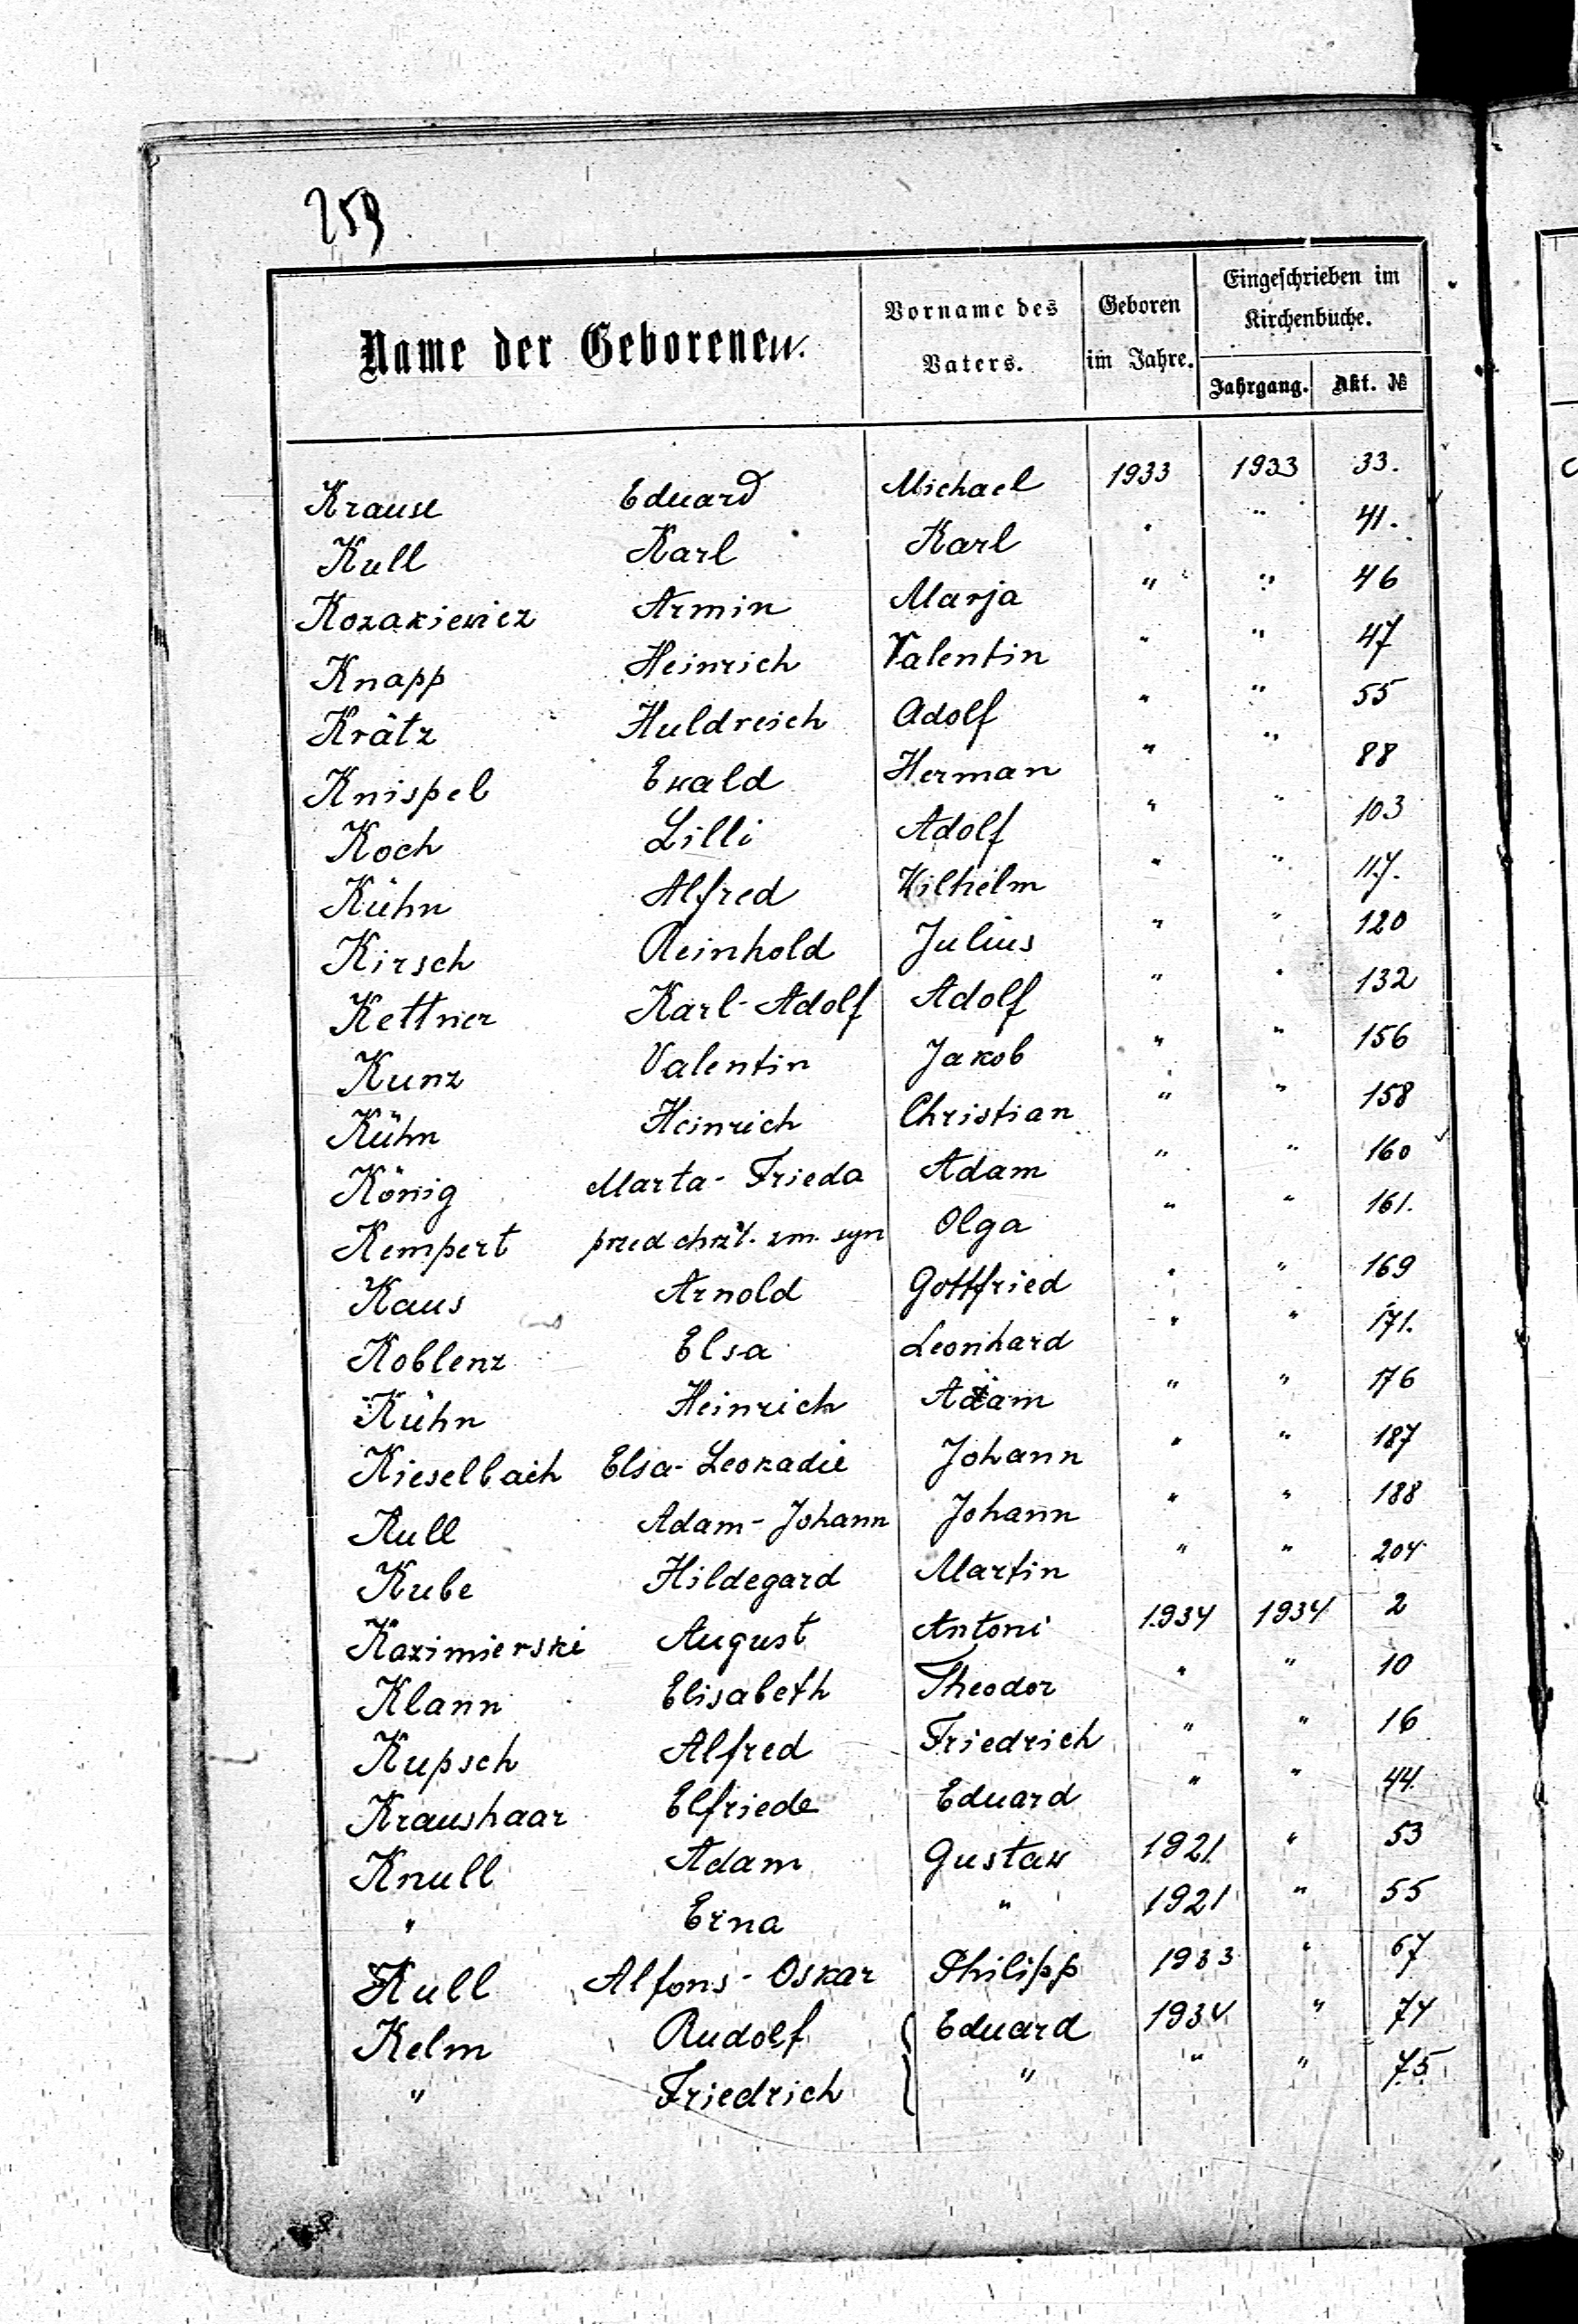 259
Name der Geborenen.
Vorname des Vaters.
Geboren im Jahre.
Eingeschrieben im Kirchenbuche.
Jahrgang.
Akt. №
Krause Eduard Michael 1933 1933 33.
Kull Karl Karl " " 41.
Kozakiewicz Armin Marja " " 46
Knapp Heinrich Valentin " " 47
Krätz Huldreich Adolf " " 55
Knispel Ewald Herman " " 88
Koch Lilli Adolf " " 103
Kühn Alfred Wilhelm " " 117.
Kirsch Reinhold Julius " " 120
Kettner Karl-Adolf Adolf " " 132
Kunz Valentin Jakob " " 156
Kühn Heinrich Christian " " 158
König Marta-Frieda Adam " " 160
Kempert przed chrzt. zm. syn Olga " " 161.
Kaus Arnold Gottfried " " 169
Koblenz Elsa Leonhard " " 171.
Kühn Heinrich Adam " " 176
Kieselbach Elsa-Leokadie Johann " " 187
Kull Adam-Johann Johann " " 188
Kube Hildegard Martin " " 204
Kazimierski August Antoni 1934 1934 2
Klann Elisabeth Theodor " " 10
Kupsch Alfred Friedrich " " 16
Kraushaar Elfriede Eduard " " 44.
Knull Adam Gustaw 1921 " 53
" Erna " 1921 " 55
Kull Alfons-Oskar Philipp 1933 " 67
Kelm Rudolf { Eduard 1934 " 74
" Friedrich " " " 75